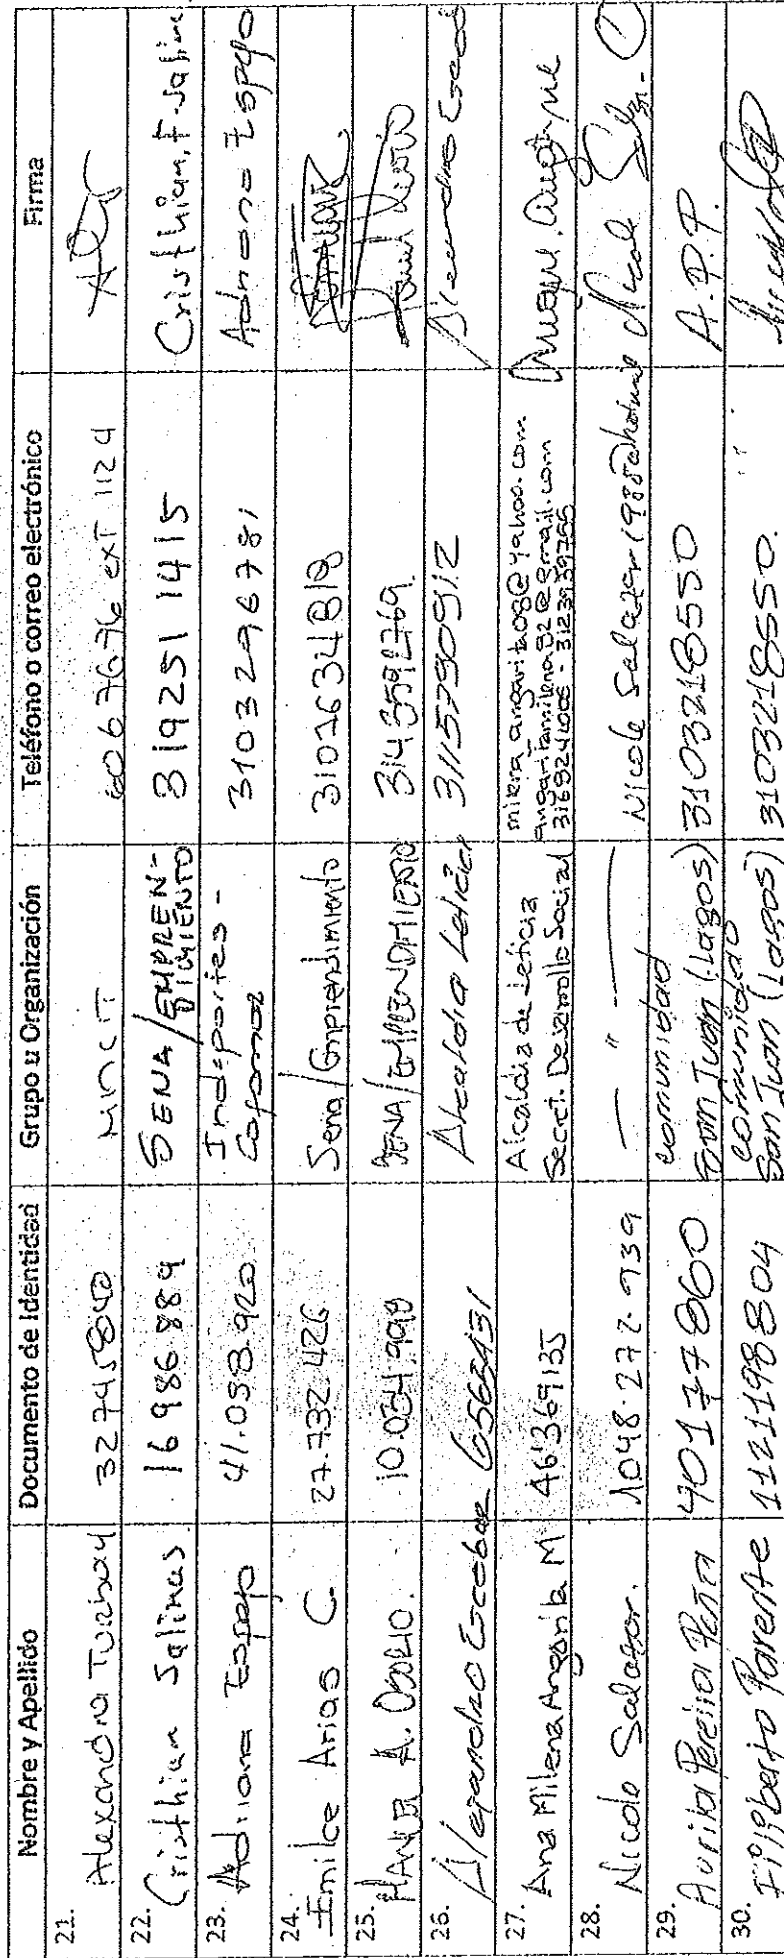 Nombre y Apellido Documento de Identidad Grupo u Organización Teléfono o correo electrónico Firma
21. Alexandra Turbay 32745840 MINCIT 6067676 ext 1124
22. Cristhian Salinas. 16986889 SENA/EMPREN-
DIMIENTO 319251 1415 Cristhian, F. Salinas
23. Adriana Espejo 41.058.920 Indeportes -
Cafamaz 3103296781 Adriana Espejo
24. Emilce Arias C. 27.732.426 Sena/Emprendimiento 3107634818
25. A. OSORIO. 10.034.999 SENA/EMPRENDIMIENTO 3143592769
26. Alejandro Escobar 6566431 Alcaldia Leticia 3115790912
27. Ana Milena Angarita M 46'369135 Alcaldia de Leticia
Secret. Desarrollo Social milena_angarita08@yahoo.com
Angaritamilena92@gmail.com
3168241006 - 3123939755
28. Nicole Salazar. 1048.272.939 — " — Nicole Salazar1985@hotmail
29. Aurita Pereira Peña 40177860 comunidad
San Juan (Lagos) 3103218550 A.P.P.
30. Filiberto Parente 1121198804 comunidad
San Juan (Lagos) 3103218550.